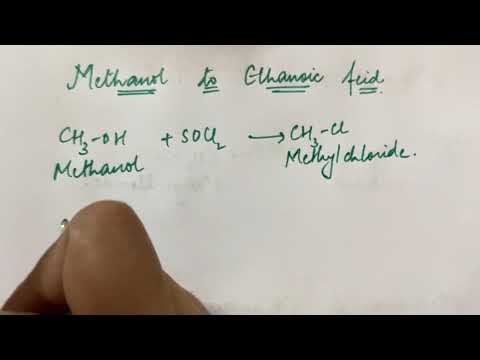 Methanol to Ethanoic Acid
CH3-OH + SOCl2 → CH3-Cl
Methanol Methylchloride.